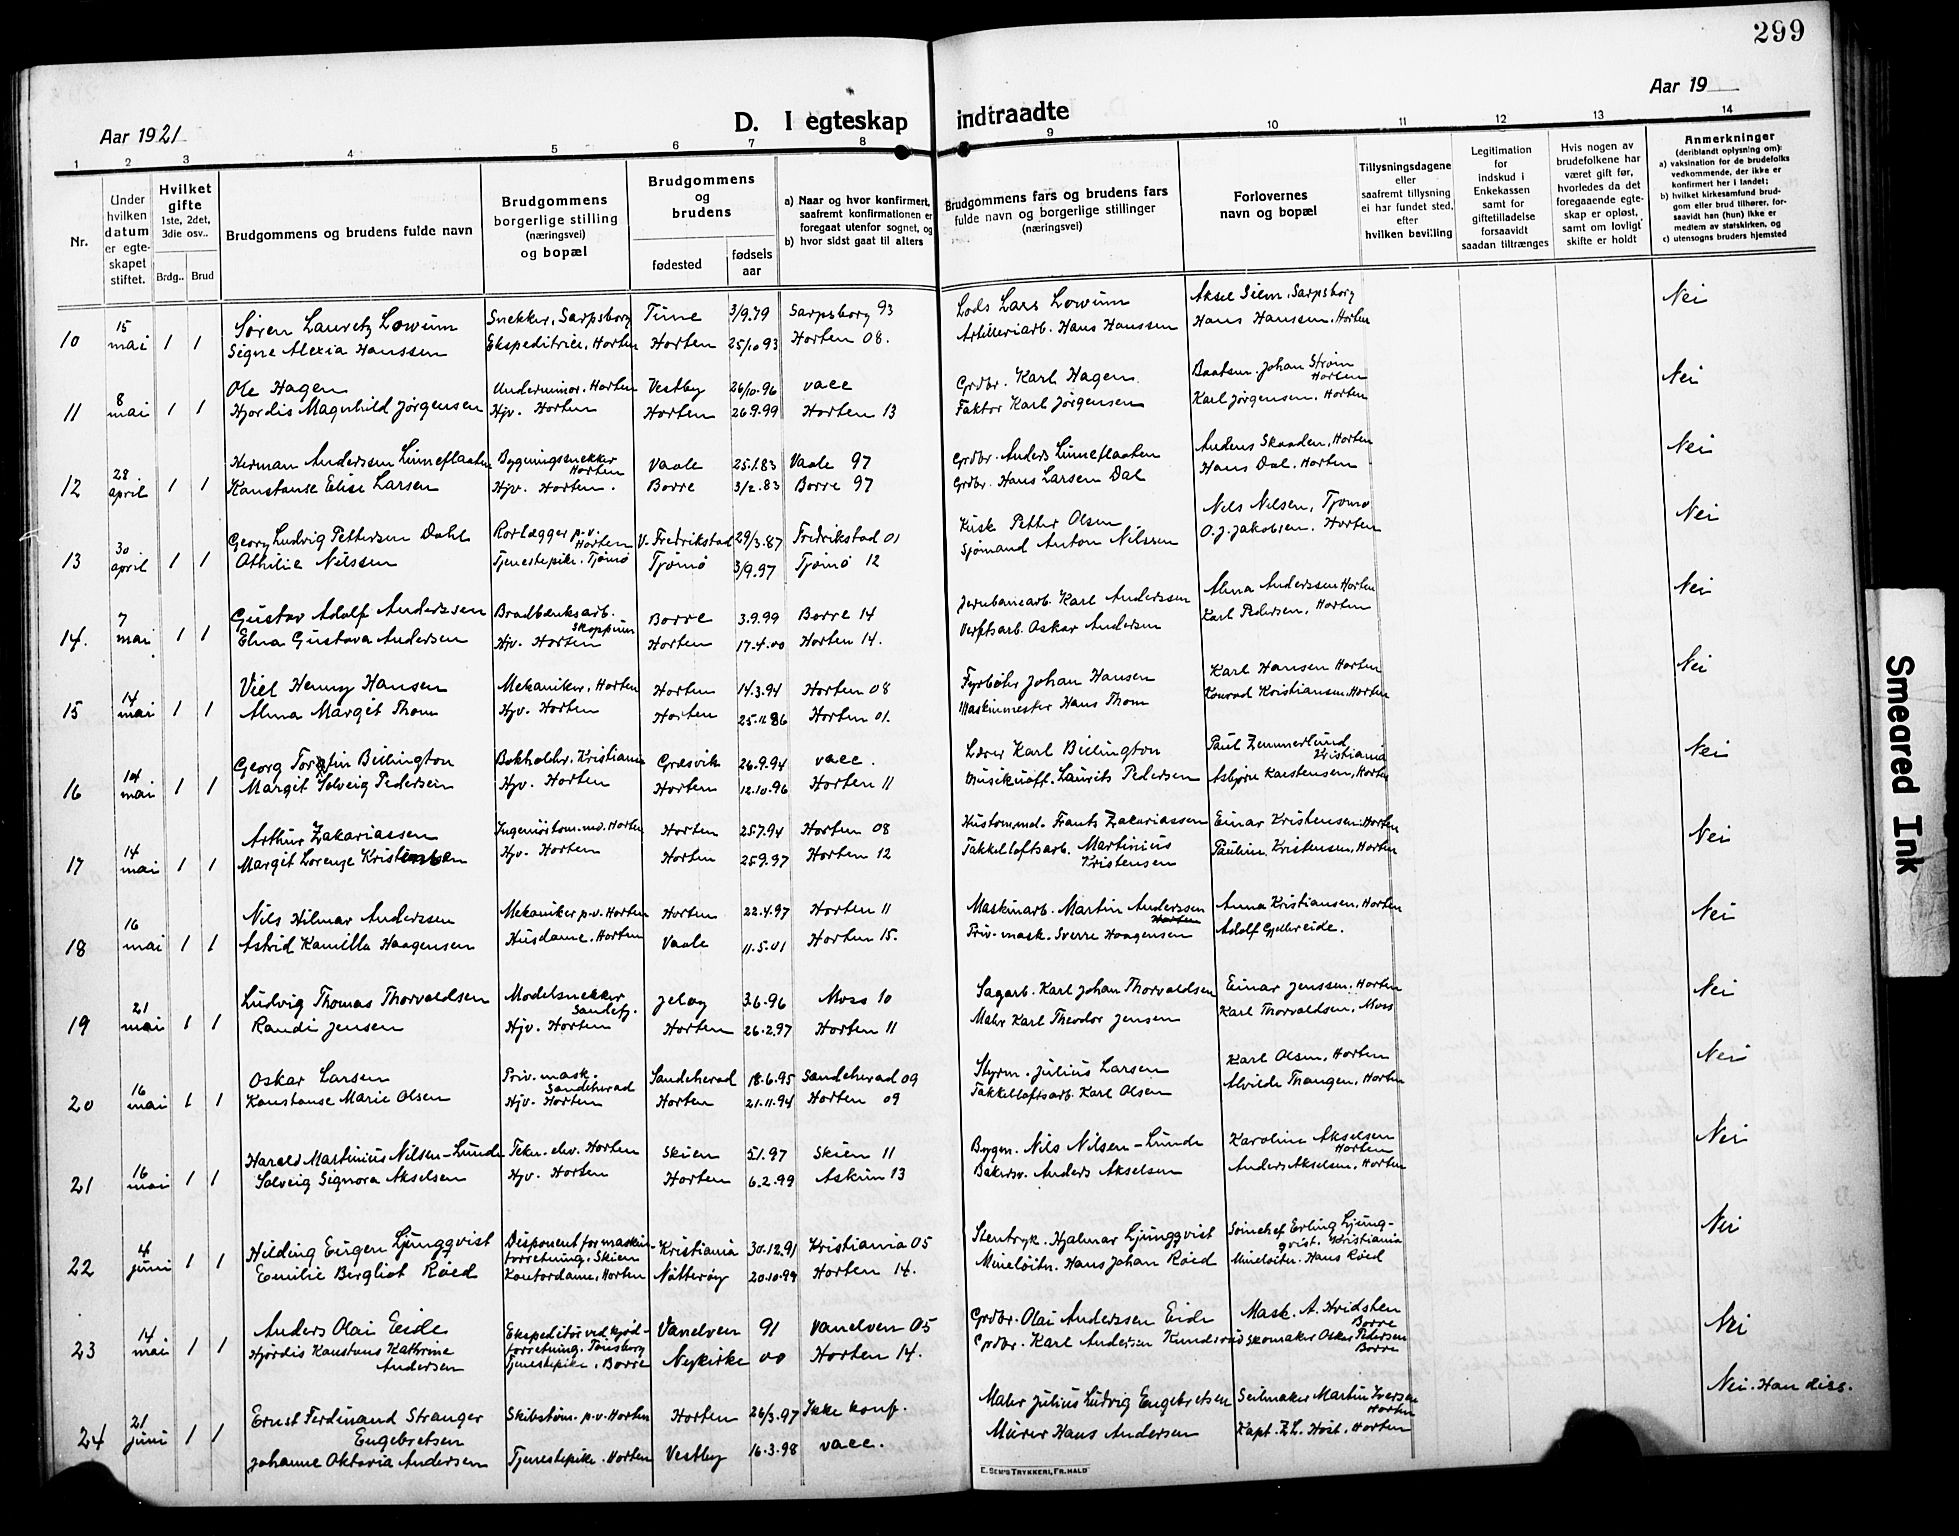 299
Aar 1921
D. I egteskap indtraadte
Aar 19
1 2 3 4 5 6 7 8 9 10 11 12 13 14
Nr.
Under hvilken datum er egteskapet stiftet.
Hvilket gifte
1ste, 2det, 3die osv..
Brdg.. Brud
Brudgommens og brudens fulde navn
Brudgommens borgerlige stilling (næringsvei) og bopæl
Brudgommens og brudens
fødested
fødsels aar
a) Naar og hvor konfirmert, saafremt konfirmationen er foregaat utenfor sognet, og
b) hvor sidst gaat til alters
Brudgommens fars og brudens fars fulde navn og borgerlige stillinger (næringsvei)
Forlovernes navn og bopæl
Tillysningsdagene eller saafremt tillysning ei har fundet sted, efter hvilken bevilling
Legitimation for indskud i Enkekassen samt for giftetilladelse forsaavidt saadan tiltrænges
Hvis nogen av brudefolkene har været gift før, hvorledes da det foregaaende egteskap er opløst, samt om lovligt skifte er holdt
Anmerkninger
(deriblandt oplysning om):
a) vaksination for de brudefolks vedkommende, der ikke er konfirmert her i landet;
b) hvilket kirkesamfund brudgom eller brud tilhører, forsaavidt han (hun) ikke er medlem av statskirken, og
c) utensogns bruders hjemsted
10 15 mai 1 1 Søren Lauretz Lowum Snekker, Sarpsborg Tune 3/9.79 Sarpsborg 93 Lods Lars Lowum Aksel Siem, Sarpsborg Nei
Signe Alexia Hanssen Ekspeditrice, Horten Horten 25/10 93 Horten 08. Artilleriarb. Hans Hanssen Hans Hanssen, Horten
11 8 mai 1 1 Ole Hagen Underminør. Horten Vestby 26/10.96 vacc Grdbr. Karl Hagen Baatsm. Johan Strøm Horten Nei
Hjørdis Magnhild Jørgensen Hjv. Horten Horten 26.9.99 Horten 13 Faktor Karl Jørgensen Karl Jørgensen, Horten
12 28 april 1 1 Herman Anderssen Linneflaaten Bygningssnekker Horten Vaale 25.1.83 Vaale 97 Grdbr. Anders Linneflaaten Anders Skaaden, Horten Nei
Konstanse Elise Larsen Hjv. Horten. Borre 3/2.83 Borre 97 Grdbr. Hans Larsen Dal Hans Dal. Horten
13 30 april 1 1 Georg Ludvig Pettersen Dahl Rørlægger p.v. Horten V. Fredrikstad 29/3.87 Fredrikstad 01 Kusk Petter Olsen Nils Nilsen, Tjømø Nei
Othilie Nilssen Tjenestepike. Tjømø Tjømø 3/9.97 Tjømø 12 Sjømand Anton Nilssen O. J. Jakobsen. Horten
14. 7 mai 1 1 Gustav Adolf Anderssen Bradbænksarb. Skoppum Borre 3.9.99 Borre 14 Jernbanearb. Karl Anderssen Alma Anderssen Horten Nei
Elna Gustava Andersen Hjv. Horten Horten 17.4.00 Horten 14. Verftsarb. Oskar Andersen Karl Pedersen, Horten
15 14 mai 1 1 Viel Henny Hansen Mekaniker, Horten Horten 14.3.94 Horten 08 Fyrbøter Johan Hansen Karl Hansen Horten Nei
Alma Margit Thom Hjv. Horten Horten 25.11.86 Horten 01. Maskinmester Hans Thom Konrad Kristiansen, Horten
16 14 mai 1 1 Georg Torstin Billington Bokholder. Kristiania Græsvik 26.9.94 vacc. Lærer Karl Billington Paul Zemmerlund Kristiania Nei
Margit Solveig Pedersen Hjv. Horten Horten 12.10.96 Horten 11 Musikuoff. Laurits Pedersen Asbjørn Karstensen, Horten
17 14 mai 1 1 Arthur Zakariassen Ingeniøtom. md. Horten Horten 25.7.94 Horten 08 Hustømmd. Frants Zakariassen Einar Kristensen. Horten Nei
Margit Lorense Kristensen Hjv. Horten Horten 25.9.97 Horten 12 Takkelloftsarb. Martinius Kristensen Pauline Kristensen, Horten
18 16 mai 1 1 Nils Hilmar Anderssen Mekaniker p.v. Horten Horten 22.4.97 Horten 11 Maskinarb. Martin Anderssen Anna Kristiansen, Horten Nei
Astrid Kamilla Haagensen Husdame. Horten Vaale 11.5.01 Horten 15. Priv. mask. Sverre Haagensen Adolf Gjellereide.
19 21 mai 1 1 Ludvig Thomas Thorvaldsen Modelsnekker Sandefj. Jeløy 3.6.96 Moss 10 Sagarb. Karl Johan Thorvaldsen Einar Jenssen. Horten Nei
Randi Jensen Hjv. Horten Horten 26.2.97 Horten 11 Maler Karl Theodor Jensen Karl Thorvaldsen, Moss
20 16 mai 1 1 Oskar Larsen Priv. mask. Sandeherad Sandeherad 18.6.95 Sandeherad 09 Styrm. Julius Larsen Karl Olsen, Horten Nei
Konstanse Marie Olsen Hjv. Horten Horten 21.11.94 Horten 09 Takkelloftsarb. Karl Olsen Alvilde Thangen, Horten
21 16 mai 1 1 Harald Martinius Nilsen-Lunde Tekn. elev. Horten Skien 5.1.97 Skien 11 Bygm. Nils Nilsen-Lunde Karoline Akselsen Horten Nei
Solveig Signora Akselsen Hjv. Horten Horten 6.2.99 Askim 13 Bakersv. Anders Akselsen Anders Akselsen, Horten
22 4 juni 1 1 Hilding Eugen Ljungqvist Disponent for maskinforretning. Skien Kristiania 30.12.91 Kristiania 05 Stentryk. Hjalmar Ljungqvist Soinchef Erling Ljungqvist. Kristiania Nei
Emilie Bergliot Røed Kontordame. Horten Nøtterøy 20.10.99 Horten 14. Mineløitn. Hans Johan Røed Mineløitn. Hans Røed
23 14 mai 1 1 Anders Olai Eide Ekspeditør ved kjødforretning. Tønsberg Vanelven 91 Vanelven 05 Grdbr. Olai Anderssen Eide Mask. A. Hvidsten Borre Nei
Hjørdis Konstans Kathrine Andersen Tjenestepike, Borre Nykirke 00 Horten 14. Grdbr. Karl Andersen Knudsrød Skomaker Oskar Pedersen Borre
24 21 juni 1 1 Ernst Ferdinand Stranger Engebretsen Skibstøm. p.v. Horten Horten 26/3.97 Ikke konf. Maler Julius Ludvig Engebretsen Seilmaker Martin Iversen Horten Nei. Han diss.
Johanne Oktavia Andersen Tjenestepike. Horten Vestby 16.3.98 vacc. Murer Hans Andersen Kapt. Z. L. Høst. Horten
E. SEM'S TRYKKERI, FR.HALD
Smeared Ink